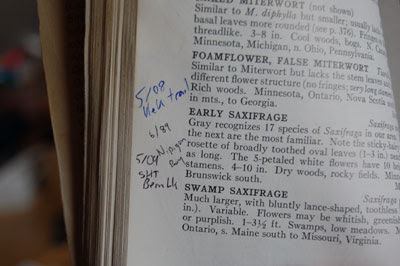 MITERWORT (not shown)
Similar to M. diphylla but smaller; usually lack
basal leaves more rounded (see p. 376). Fringes
threadlike. 3–8 in. Cool woods, bogs. N. Can
Minnesota, Michigan, n. Ohio, Pennsylvania.
FOAMFLOWER, FALSE MITERWORT
Similar to Miterwort but lacks the stem leaves
different flower structure (no fringes; very long stamens
Rich woods. Minnesota, Ontario, Nova Scotia
in mts., to Georgia.
5/08
trail
EARLY SAXIFRAGE Saxifraga
Gray recognizes 17 species of Saxifraga in our are
6/89
the next are the most familiar. Note the sticky-hair
rosette of broadly toothed oval leaves (1–3 in.)
5/09
as long. The 5-petaled white flowers have 10
stamens. 4–10 in. Dry woods, rocky fields. Minn
SHT
Brunswick south.
SWAMP SAXIFRAGE Saxifraga
Much larger, with bluntly lance-shaped, toothless
in.). Variable. Flowers may be whitish, greenish
or purplish. 1–3½ ft. Swamps, low meadows. M
Ontario, s. Maine south to Missouri, Virginia.